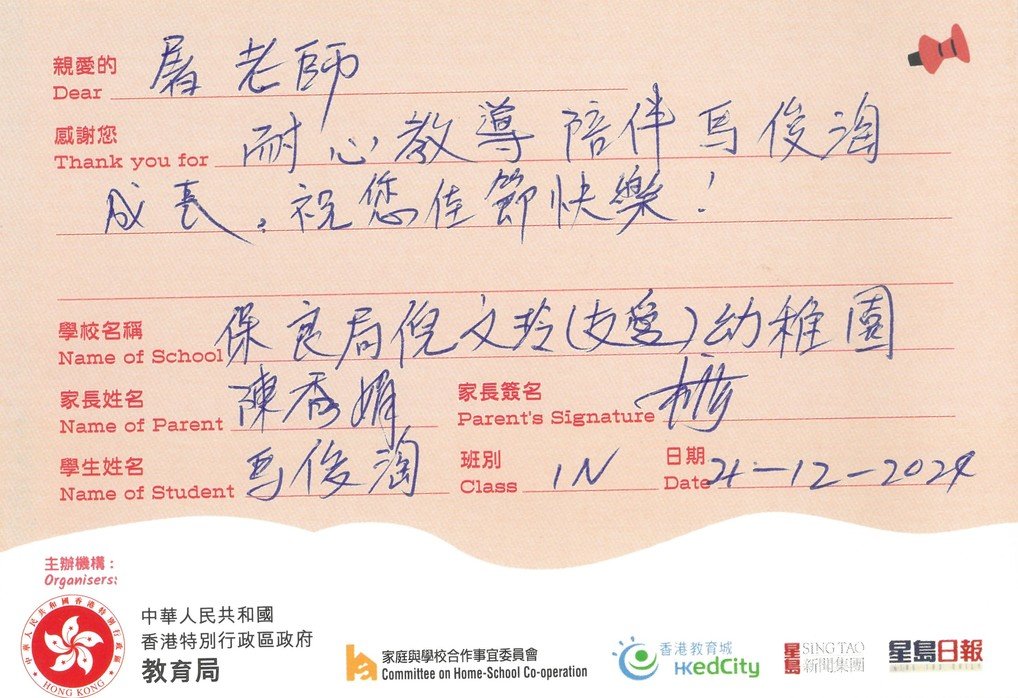 親愛的
Dear 屠老師
感謝您
Thank you for 耐心教導陪伴馬俊淘
成長，祝您佳節快樂！
學校名稱
Name of School 保良局倪文玲(友愛)幼稚園
家長姓名 家長簽名
Name of Parent 陳秀娟 Parent's Signature
學生姓名 班別 日期
Name of Student 馬俊淘 Class 1N Date 21-12-2024
主辦機構：
Organisers:
中華人民共和國香港特別行政區政府
HONG KONG
中華人民共和國
香港特別行政區政府
教育局
家庭與學校合作事宜委員會
Committee on Home-School Co-operation
香港教育城
HKedCity
星島 SING TAO
新聞集團
星島日報